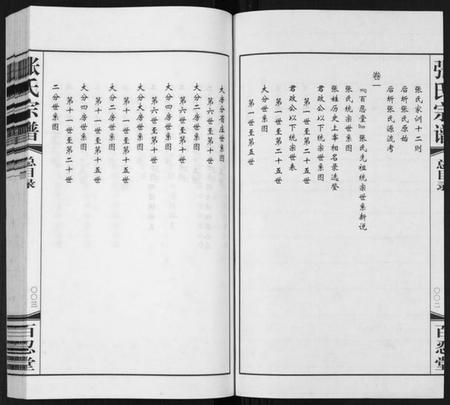 张氏宗谱
总目录
〇〇二
百忍堂
张氏家训十二则
后圻张氏原始
后圻张氏源流考
卷一
『百忍堂』张氏先祖统宗世系新说
张氏统宗世系图
张姓历史上宰相名录选登
君政公以下统宗世系图
第一世至第二十五世
君政公以下统宗世表
第一世至第二十五世
大分世系图
第一世至第五世
大房分前庄世系图
第六世至第十世
大分二房世系图
第六世至第十世
大分四房世系图
第六世至第十世
大分大房世系图
第十一世至第十五世
大分二房世系图
第十一世至第十五世
大分四房世系图
第十一世至第十五世
二分世系图
第十一世至第二十世
张氏宗谱
总目录
〇〇三
百忍堂